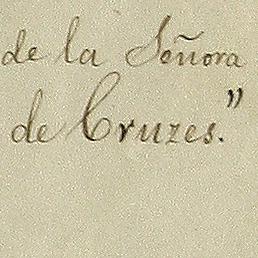 de la Señora
de Cruzes."